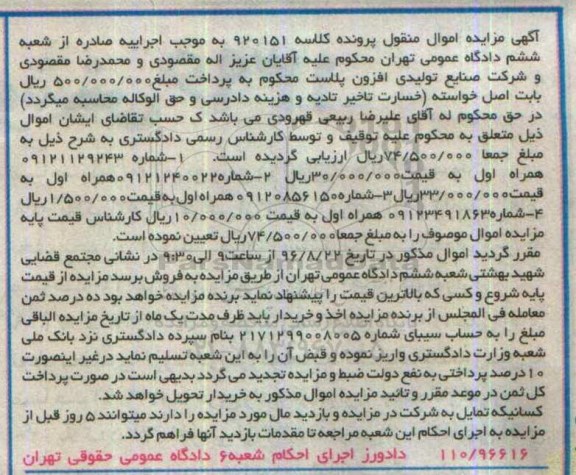 آگهی مزایده اموال منقول پرونده کلاسه ۹۲۰۱۵۱ به موجب اجراییه صادره از شعبه
ششم دادگاه عمومی تهران محکوم علیه آقایان عزیز اله مقصودی و محمدرضا مقصودی
و شرکت صنایع تولیدی افزون پلاست محکوم به پرداخت مبلغ۵۰۰/۰۰۰/۰۰۰ ریال
بابت اصل خواسته (خسارت تاخیر تادیه و هزینه دادرسی و حق الوکاله محاسبه میگردد)
در حق محکوم له آقای علیرضا ربیعی قهرودی می باشد ک حسب تقاضای ایشان اموال
ذیل متعلق به محکوم علیه توقیف و توسط کارشناس رسمی دادگستری به شرح ذیل به
مبلغ جمعا ۷۴/۵۰۰/۰۰۰ریال ارزیابی گردیده است. ۱-شماره ۰۹۱۲۱۱۲۹۲۴۳
همراه اول به قیمت۳۰/۰۰۰/۰۰۰ریال ۲-شماره۰۹۱۲۱۲۴۰۰۲۲همراه اول به
قیمت۳۳/۰۰۰/۰۰۰ریال۳-شماره۰۹۱۲۰۸۵۶۱۵۰ همراه اول به قیمت۱/۵۰۰/۰۰۰ریال
۴-شماره۰۹۱۲۳۴۹۱۸۶۳ همراه اول به قیمت ۱۰/۰۰۰/۰۰۰ریال کارشناس قیمت پایه
مزایده اموال موصوف را به مبلغ جمعا۷۴/۵۰۰/۰۰۰ریال تعیین نموده است.
مقرر گردید اموال مذکور در تاریخ ۹۶/۸/۲۲ از ساعت۹ الی۹:۳۰ در نشانی مجتمع قضایی
شهید بهشتی شعبه ششم دادگاه عمومی تهران از طریق مزایده به فروش برسد مزایده از قیمت
پایه شروع و کسی که بالاترین قیمت را پیشنهاد نماید برنده مزایده خواهد بود ده درصد ثمن
معامله فی المجلس از برنده مزایده اخذ و خریدار باید ظرف مدت یک ماه از تاریخ مزایده الباقی
مبلغ را به حساب سیبای شماره ۲۱۷۱۲۹۹۰۰۸۰۰۵ بنام سپرده دادگستری نزد بانک ملی
شعبه وزارت دادگستری واریز نموده و قبض آن را به این شعبه تسلیم نماید درغیر اینصورت
۱۰درصد پرداختی به نفع دولت ضبط و مزایده تجدید می گردد بدیهی است در صورت پرداخت
کل ثمن در موعد مقرر و تائید مزایده اموال مذکور به خریدار تحویل خواهد شد.
کسانیکه تمایل به شرکت در مزایده و بازدید مال مورد مزایده را دارند میتوانند ۵ روز قبل از
مزایده به اجرای احکام این شعبه مراجعه تا مقدمات بازدید آنها فراهم گردد.
۱۱۰/۹۶۶۱۶ دادورز اجرای احکام شعبه۶ دادگاه عمومی حقوقی تهران